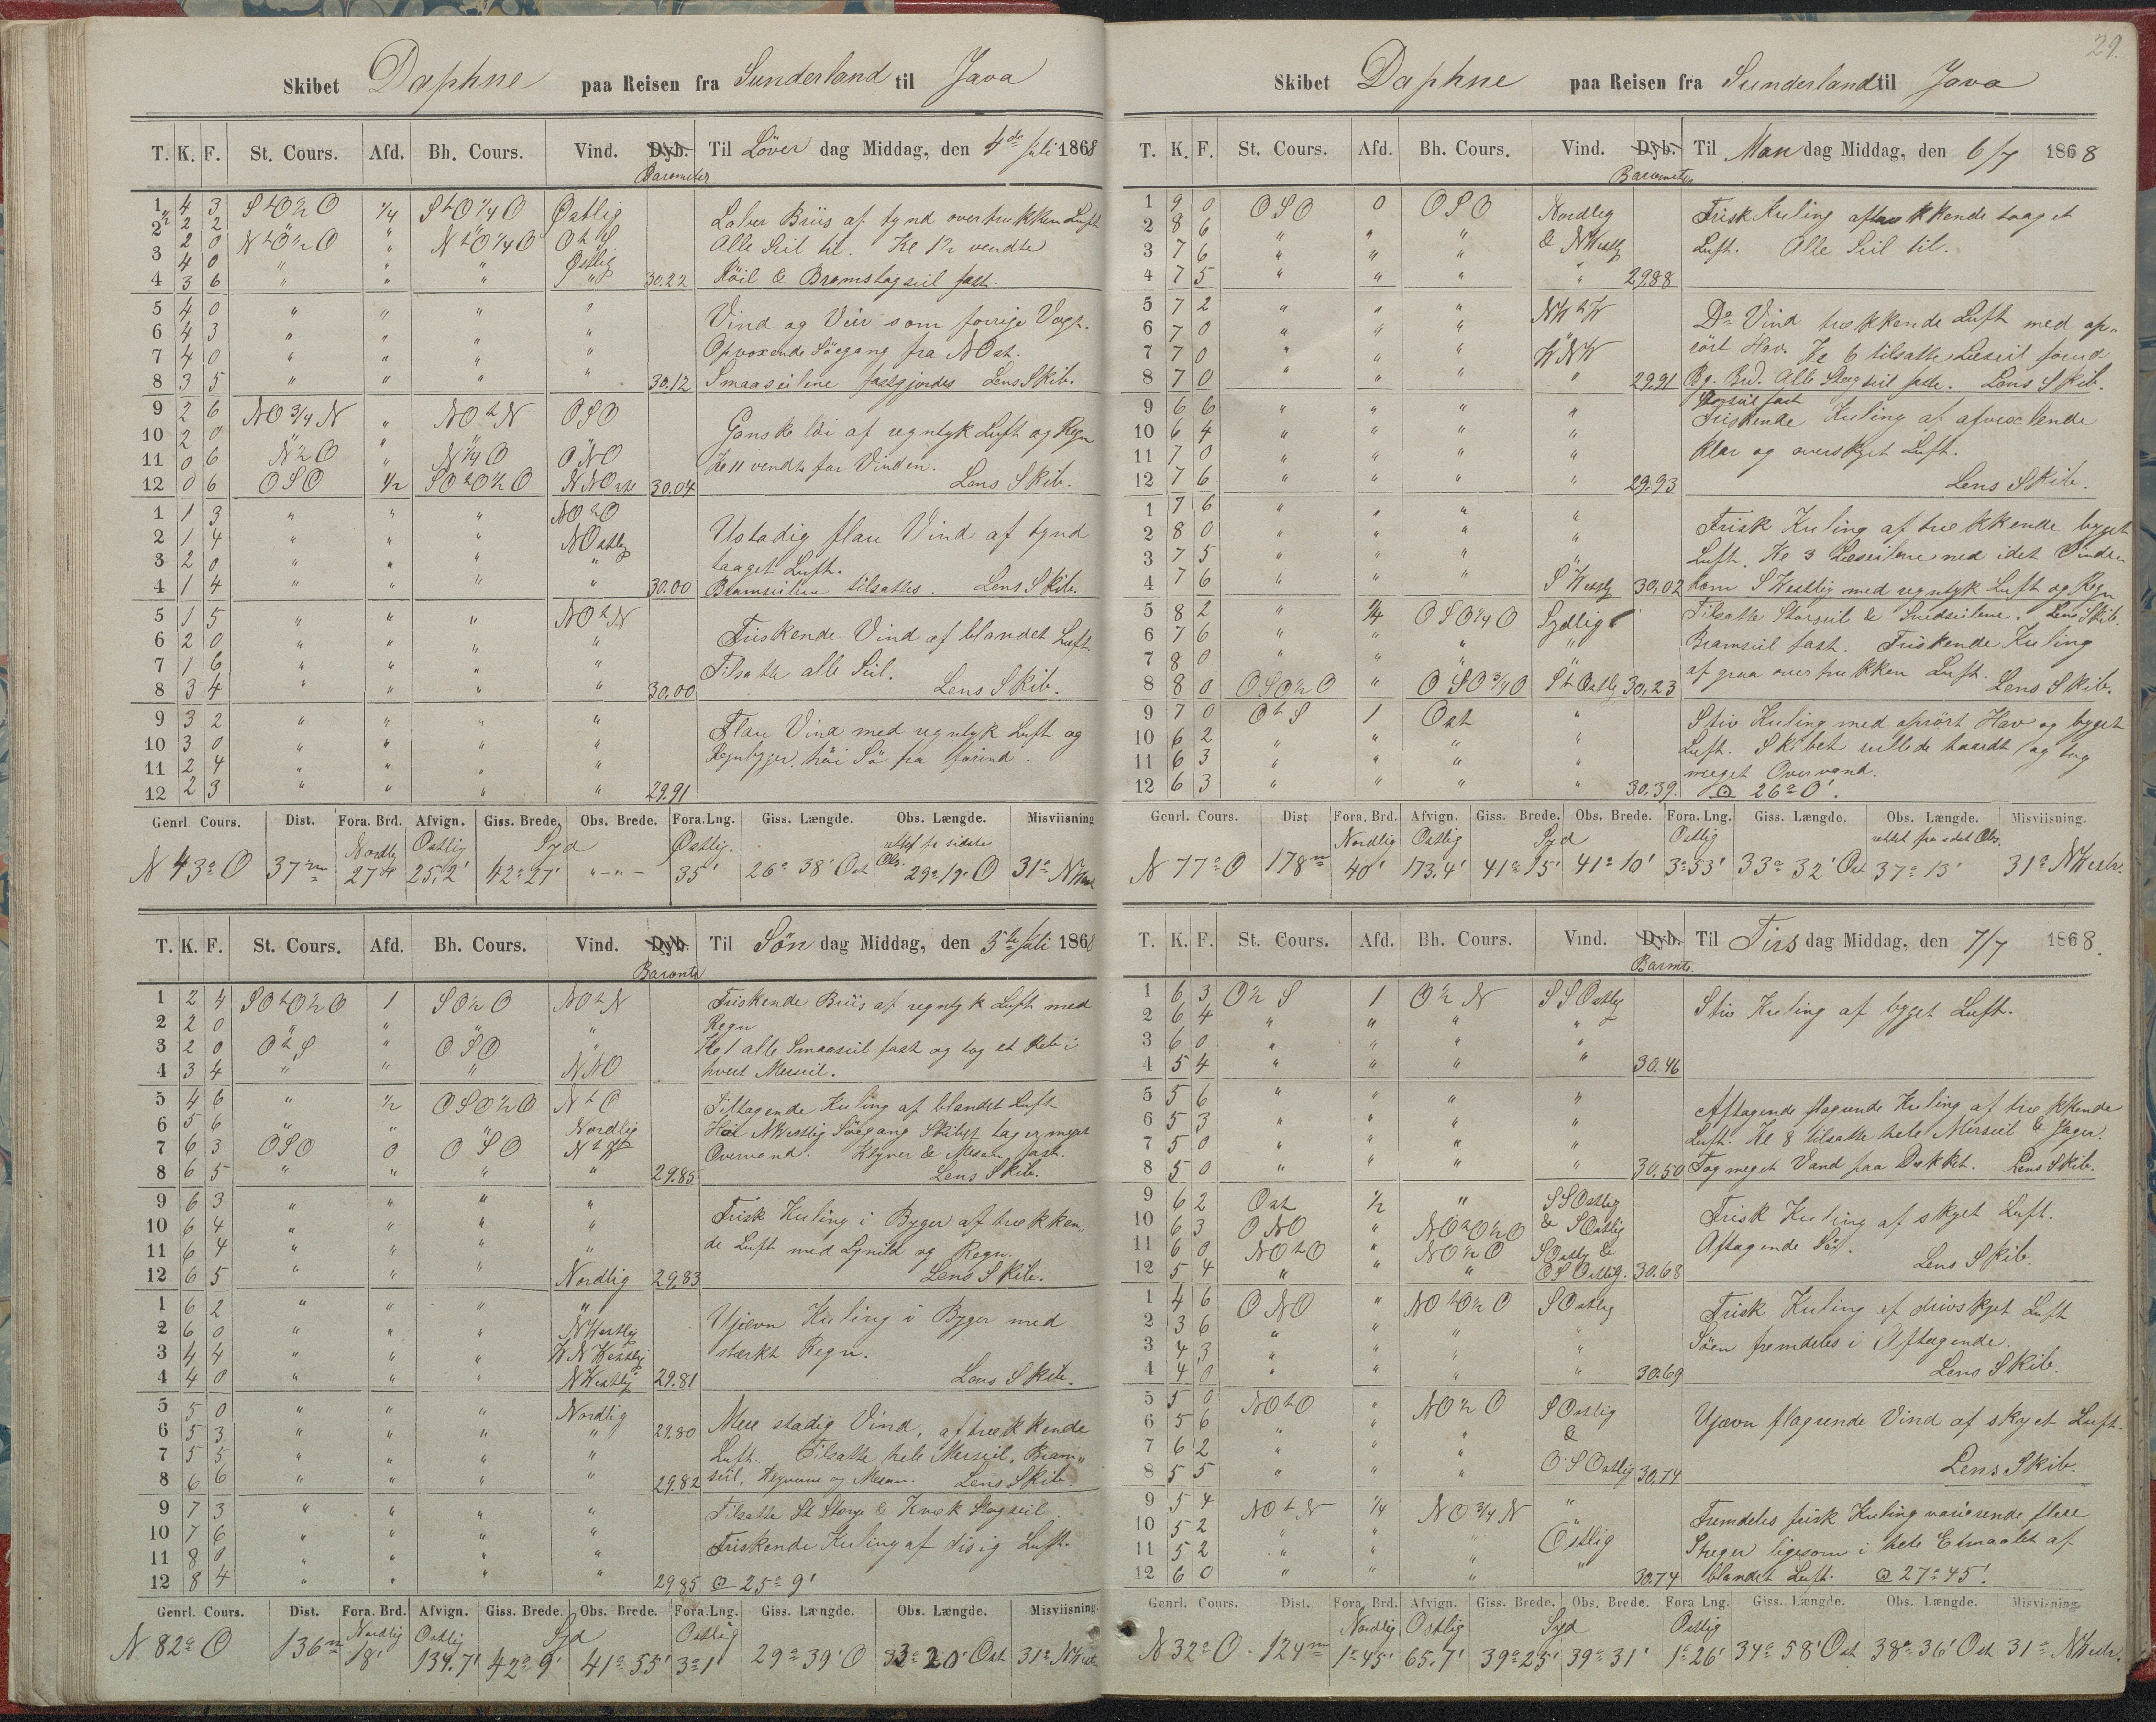 Skibet Daphne paa Reisen fra Sunderland til Java
T. K. F. St. Cours. Afd. Bh. Cours. Vind. Dyb. Til Löver dag Middag, den 4de Juli 1868
Barometer
1 4 3 StO½O ¼ StO¼O Östlig
2 2 2 " "
2 0 NtO½O " NtO¼O OtS
3 4 0 " " " Östlig
4 3 6 " " " " 30.22
Laber Briis af tynd overtrukken Luft
Alle Seil til. Kl 1½ vendte
Röil & Bramstagseil fast.
5 4 0 " " " "
6 4 3 " " " "
7 4 0 " " " "
8 3 5 " " " " 30.12
Vind og Veir som forrige Vagt.
Opvoxende Söegang fra NOst.
Smaaseilene fastgjordes Lens Skib.
9 2 6 NO¾N " NOtN OSO
10 2 0 " " " "
11 0 6 N½O " N¼O ONO
12 0 6 OSO ½ SOtO½O NNOst 30.04
Ganske löi af regntyk Luft og Regn
Kl 11 vendte for Vinden.
Lens Skib.
1 1 3 " " " NOtO
2 1 4 " " " NOstlig
3 2 0 " " " "
4 1 4 " " " " 30.00
Ustadig flau Vind af tynd
taaget Luft.
Bramseilene tilsattes. Lens Skib.
5 1 5 " " " NOtN
6 2 0 " " " "
7 1 6 " " " "
8 3 4 " " " " 30.00
Friskende Vind af blandet Luft
Tilsatte alle Seil.
Lens Skib.
9 3 2 " " " "
10 3 0 " " " "
11 2 4 " " " "
12 2 3 " " " " 29.91
Flau Vind med regntyk Luft og
Regnbyger, höi Sö fra forind.
Genrl Cours. Dist. Fora. Brd. Afvign. Giss. Brede. Obs. Brede. Fora.Lng. Giss. Længde. Obs. Længde. Misviisning
Nordlig Östlig Syd Östlig. rettet fra sidste Obs.
N 43° O 37m 27' 25,2' 42° 27' "-"- 35' 26° 38' Ost 29° 19' O 31° NWest
T. K. F. St. Cours. Afd. Bh. Cours. Vind. Dyb. Til Sön dag Middag, den 5te Juli 1868
Baromtr
1 2 4 SOtO½O 1 SO½O NOtN
2 2 0 " " " "
3 2 0 OtS " OSO "
4 3 4 " " " NNO
Friskende Briis af regntyk Luft med
Regn
Kl 1 alle Smaaseil fast og tog et Reb i
hvert Merseil.
5 4 6 " ½ OSO½O NtO
6 5 6 " " " Nordlig
7 6 3 OSO 0 OSO NtW
8 6 5 " " " " 29.85
Tiltagende Kuling af blandet Luft
Höi NWestlig Söegang Skibet tager meget
Overvand. Klyver & Mesan fast.
Lens Skib.
9 6 3 " " " "
10 6 4 " " " "
11 6 4 " " " "
12 6 5 " " " Nordlig 29.83
Frisk Kuling i Byger af trækken,
de Luft med Lynild og Regn.
Lens Skib.
1 6 2 " " " "
2 6 0 " " " NWestlig
3 4 4 " " " WNWestlig
4 4 0 " " " NWestlig 29.81
Ujævn Kuling i Byger med
stærkt Regn.
Lens Skib.
5 5 0 " " " Nordlig
6 5 3 " " " " 29.80
7 5 5 " " " "
8 6 6 " " " " 29.82
Mere stadig Vind, aftrækkende
Luft. Tilsatte hele Merseil, Bram„
seil, Klyverne og Mesan. Lens Skib
9 7 3 " " " "
10 7 6 " " " "
11 8 0 " " " "
12 8 4 " " " " 29.85
Tilsatte St Stænge & Kryds Stagseil.
Friskende Kuling af disig Luft.
25° 9'
Genrl. Cours. Dist. Fora. Brd. Afvign. Giss. Brede. Obs. Brede. Fora.Lng. Giss. Længde. Obs. Længde. Misviisning.
Nordlig Östlig Syd Östlig
N 82° O 136m 18' 134.7' 42° 9' 41° 55' 3° 1' 29° 39' O 33° 20' Ost 31° NWestr
29.
Skibet Daphne paa Reisen fra Sunderland til Java
T. K. F. St. Cours. Afd. Bh. Cours. Vind. Dyb. Til Man dag Middag, den 6/7 1868
Barometer
1 9 0 OSO 0 OSO Nordlig
2 8 6 " " " & NWestlig
3 7 6 " " "
4 7 5 " " " " 29.88
Frisk Kuling aftrækkende taaget
Luft. Alle Seil til.
5 7 2 " " " NWtW
6 7 0 " " " "
7 7 0 " " " WNW
8 7 0 " " " " 29.91
Do Vind trækkende Luft med op„
rört Hav. Kl 6 tilsatte Læseil forud
Bg. Brd. Alle Stagseil fste. Lens Skib.
Storseil fast
9 6 6 " " " "
10 6 4 " " " "
11 7 0 " " " "
12 7 6 " " " " 29.93
Friskende Kuling af afvexlende
klar og overskyet Luft.
Lens Skib.
1 7 6 " " " "
2 8 0 " " " "
3 7 5 " " " "
4 7 6 " " " SWestlig 30.02
Frisk Kuling af trækkende byget
Luft. Kl 3 Læseilene ned idet Vinden
kom SWestlig med regntyk Luft og Regn
5 8 2 " ¼ OSO¼O Sydlig
6 7 6 " " " "
7 8 0 " " "
8 8 0 OSO½O " OSO¾O StOstlig 30.23
Tilsatte Storseil & Snedseilene. Lens Skib.
Bramseil fast. Friskende Kuling
af graa overtrukken Luft.
Lens Skib.
9 7 0 OtS 1 Ost "
10 6 2 " " " "
11 6 3 " " " "
12 6 3 " " " " 30.39.
Stiv Kuling med oprört Hav og byget
Luft. Skibet rullede haardt og tog
meget Overvand.
26° 0'.
Genrl. Cours. Dist Fora. Brd. Afvign. Giss. Brede. Obs. Brede. Fora.Lng. Giss. Længde. Obs. Længde. Misviisning.
Nordlig Östlig Syd Östlig rettet fra sidst Obs.
N 77° O 178m 40' 173.4' 41° 15' 41° 10' 3° 53' 33° 32' Ost 37° 13' 31° NWestr.
T. K. F. St. Cours. Afd. Bh. Cours. Vind. Dyb. Til Tirs dag Middag, den 7/7 1868.
Barmtr.
1 6 3 O½S 1 O½N SSOstlig
2 6 4 " " " "
3 6 0 " " " "
4 5 4 " " " " 30.46
Stiv Kuling af byget Luft.
5 5 6 " " " "
6 5 3 " " " "
7 5 0 " " " "
8 5 0 " " " " 30.50
Aftagende flagende Kuling af trækkende
Luft. Kl 8 tilsatte hele Merseil & Jager.
Tog meget Vand paa Dækket. Lens Skib.
9 6 2 Ost ½ " SSOstlig
10 6 3 ONO " NOtO½O & SOstlig
11 6 0 NOtO " NO½O SOstlig &
12 5 4 " " " OSOstlig. 30.68
Frisk Kuling af skyet Luft.
Aftagende Sö.
Lens Skib.
1 4 6 ONO " NOtO½O SOstlig
2 3 6 " " " "
3 4 3 " " " "
4 4 0 " " " " 30.69
Frisk Kuling af drivskyet Luft
Söen fremdeles i Aftagende.
Lens Skib.
5 5 0 NOtO " NO½O SOstlig
6 5 6 " " " &
7 6 2 " " "
8 5 5 " " " OSOstlig 30.74
Ujævn flagrende Vind af skyet Luft.
Lens Skib.
9 5 4 NOtN ¼ NO¾N "
10 5 2 " " " Östlig
11 5 2 " " "
12 6 0 " " " " 30.74
Fremdeles frisk Kuling varierende flere
Streger ligesom i hele Etmaalet af
blandet Luft. 27° 45'.
Genrl. Cours. Dist. Fora. Brd. Afvign. Giss. Brede. Obs. Brede. Fora Lng. Giss. Længde. Obs. Længde. Misviisning
Nordlig Ostlig Syd Östlig
N 32° O. 124m 1° 45' 65.7' 39° 25' 39° 31' 1° 26' 34° 58' Ost 38° 36' Ost 31° NWestr.